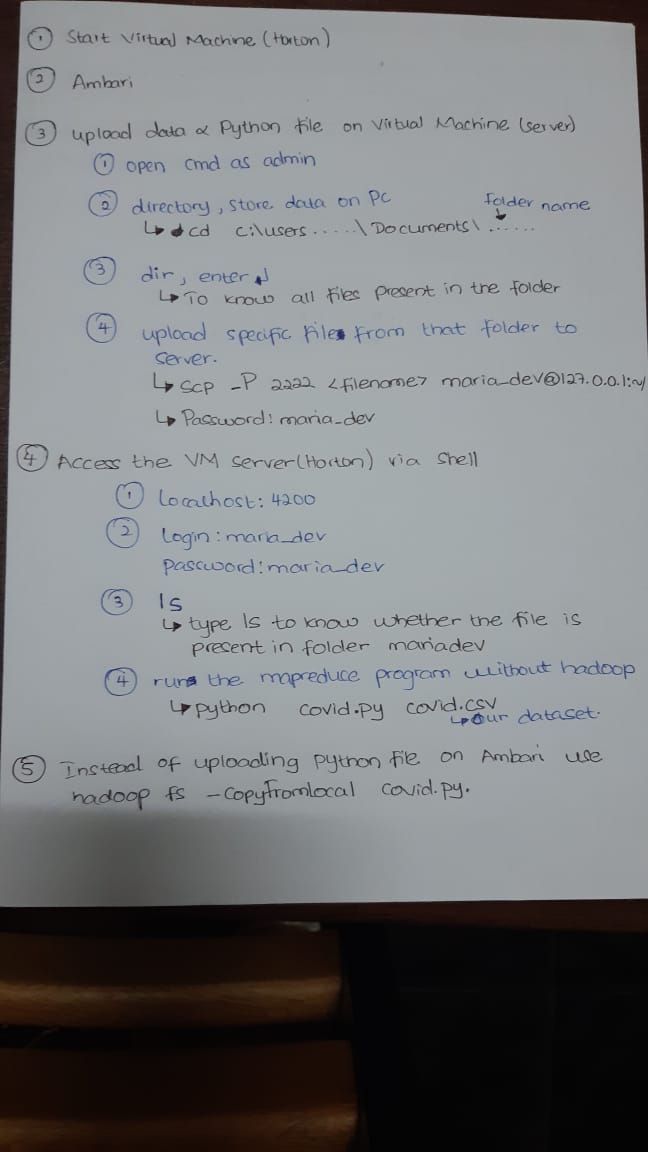 ① Start Virtual Machine (Horton)
② Ambari
③ upload data & Python file on Virtual Machine (server)
① open cmd as admin
② directory, store data on PC
folder name
↳ cd c:\users.....\Documents\......
③ dir, enter ↲
↳ To know all files present in the folder
④ upload specific file from that folder to
server.
↳ scp -P 2222 <filename> maria_dev@127.0.0.1:~/
↳ Password: maria_dev
④ Access the VM server(Horton) via shell
① Localhost: 4200
② Login: maria_dev
Password: maria_dev
③ ls
↳ type ls to know whether the file is
present in folder mariadev
④ run the mapreduce program without hadoop
↳ python covid.py covid.csv
↳ our dataset.
⑤ Instead of uploading python file on Ambari use
hadoop fs -copyfromlocal covid.py.